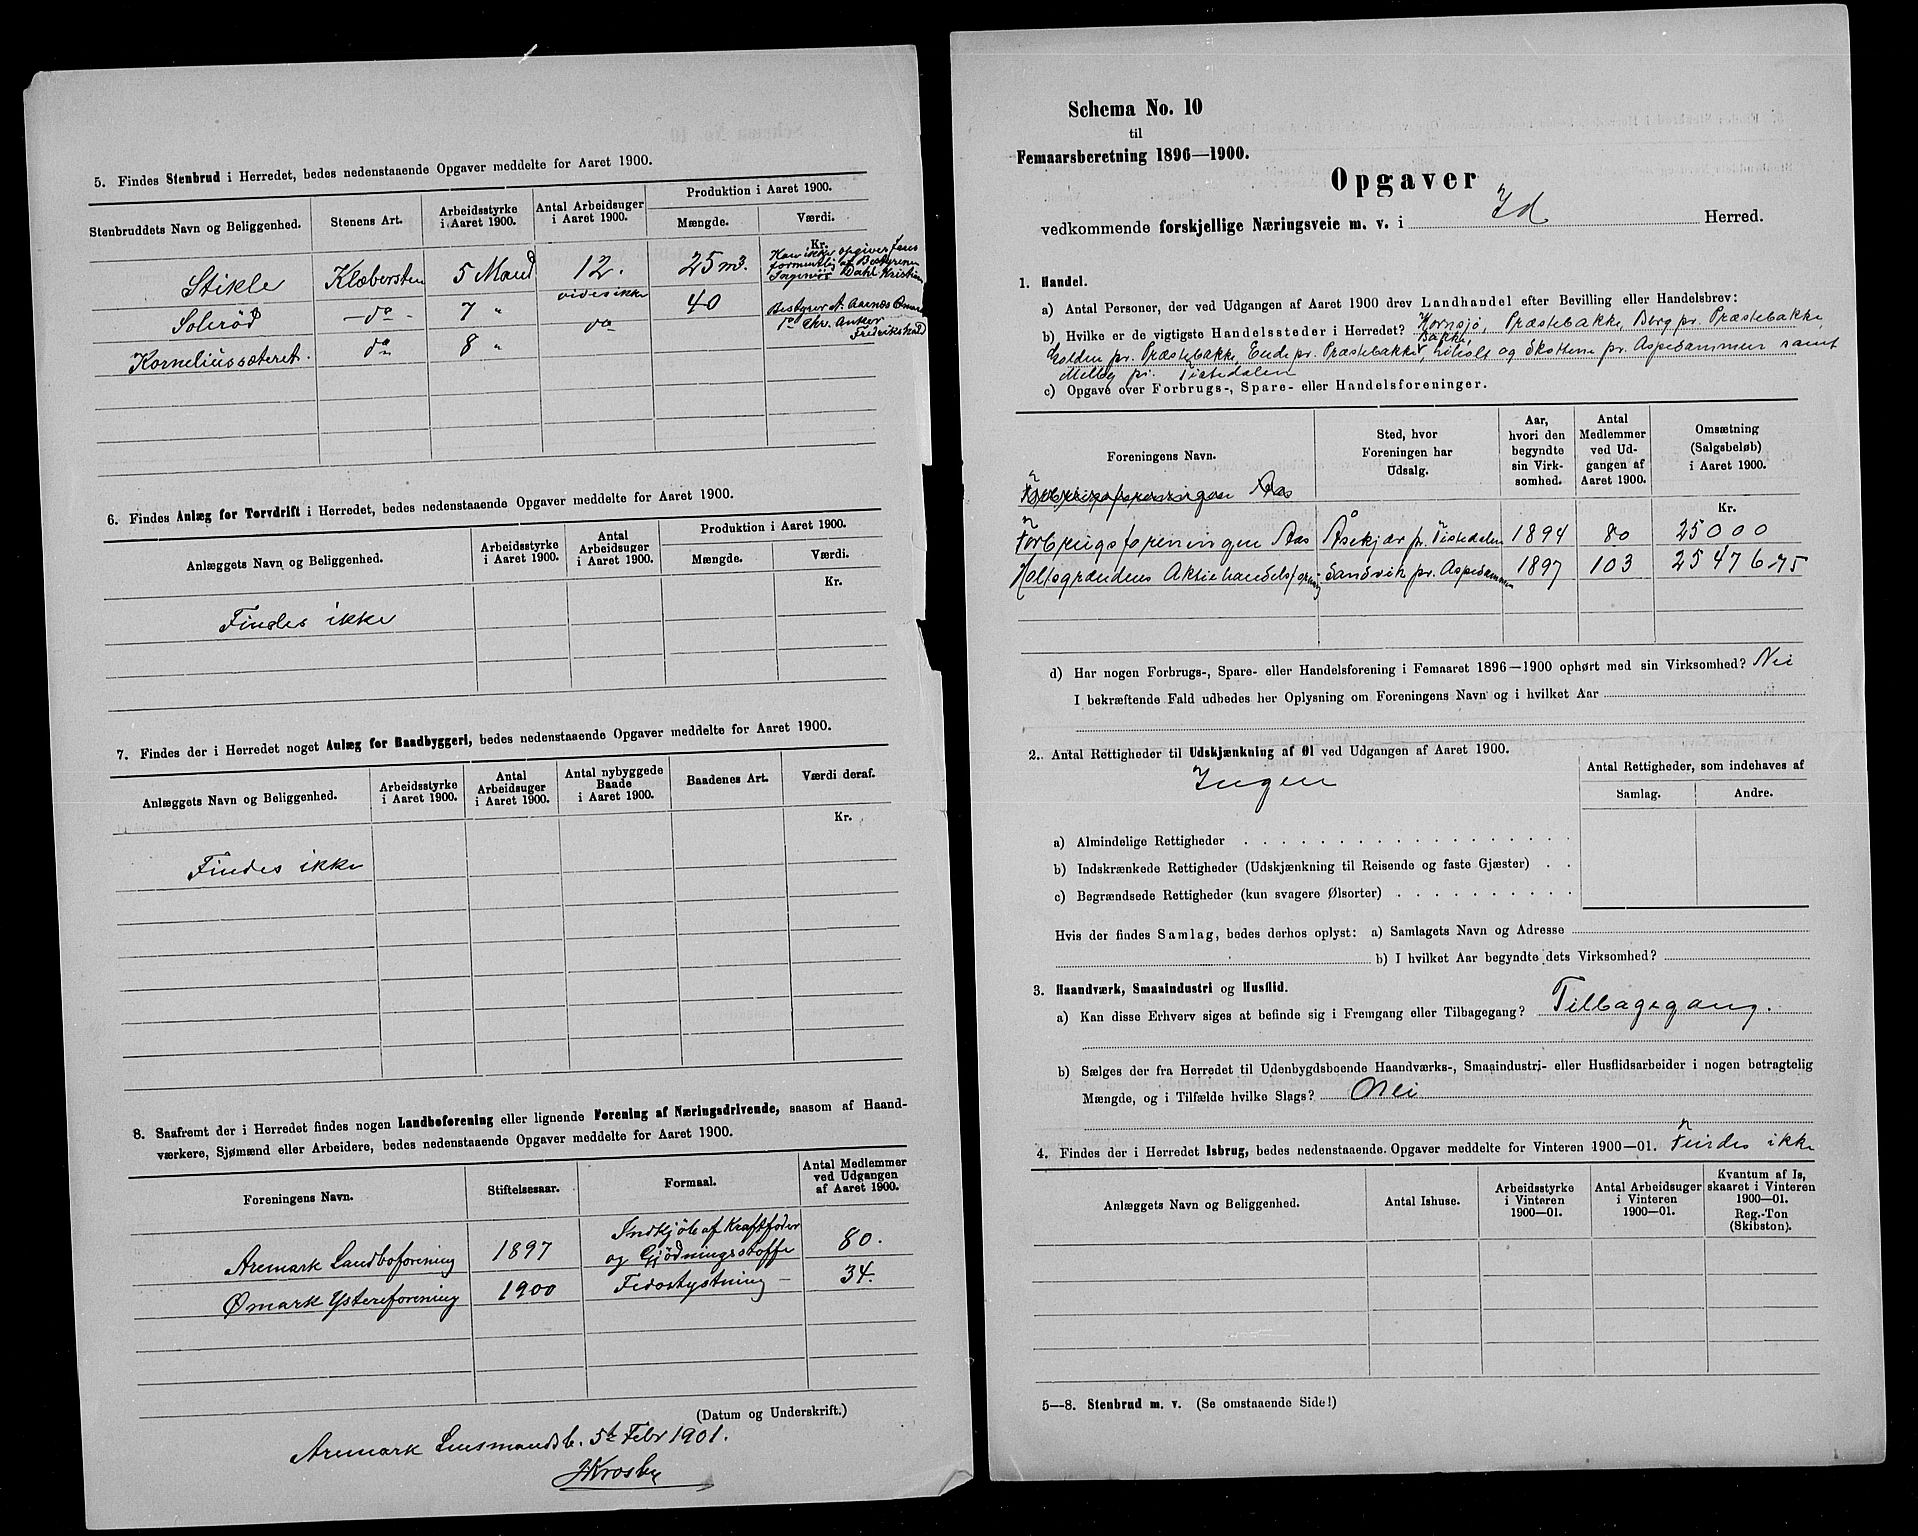 5. Findes Stenbrud i Herredet, bedes nedenstaaende Opgaver meddelte for Aaret 1900.
Stenbruddets Navn og Beliggenhed. Stenens Art. Arbeidsstyrke i Aaret 1900. Antal Arbeidsuger i Aaret 1900. Produktion i Aaret 1900. Mængde. Værdi.
Kr.
Stikle Klæbersten 5 Mand 12. 25 m3. Kan ikke opgives
formentlig af Bestyreren
Dahl Kristian
Solerød — do - 7 " vides ikke 40 Bestyrer A. Aarnes Ømark
Korneliussæteret. do 8 " do do Chr. Anker
Fredrikshald
6. Findes Anlæg for Torvdrift i Herredet, bedes nedenstaaende Opgaver meddelte for Aaret 1900.
Anlæggets Navn og Beliggenhed. Arbeidsstyrke i Aaret 1900. Antal Arbeidsuger i Aaret 1900. Produktion i Aaret 1900. Mængde. Værdi.
Kr.
Findes ikke
7. Findes der i Herredet noget Anlæg for Baadbyggeri, bedes nedenstaaende Opgaver meddelte for Aaret 1900.
Anlæggets Navn og Beliggenhed. Arbeidsstyrke i Aaret 1900. Antal Arbeidsuger i Aaret 1900. Antal nybyggede Baade i Aaret 1900. Baadenes Art. Værdi deraf.
Kr.
Findes ikke
8. Saafremt der i Herredet findes nogen Landboforening eller lignende Forening af Næringsdrivende, saasom af Haand-
værkere, Sjømænd eller Arbeidere, bedes nedenstaaende Opgaver meddelte for Aaret 1900.
Foreningens Navn. Stiftelsesaar. Formaal. Antal Medlemmer ved Udgangen af Aaret 1900.
Aremark Landboforening 1897 Indkjøb af Kraftfoder
og Gjødningsstoffe 80.
Ømark Ysteriforening 1900 Fedostystning — 34.
(Datum og Underskrift.)
Aremark Lensmandsb. 5te Febr 1901.
JKrosby
Schema No. 10
til
Femaarsberetning 1896—1900.
Opgaver
vedkommende forskjellige Næringsveie m. v. i Id Herred.
1. Handel.
a) Antal Personer, der ved Udgangen af Aaret 1900 drev Landhandel efter Bevilling eller Handelsbrev:
b) Hvilke er de vigtigste Handelssteder i Herredet? Kornsjø, Præstebakke, Berg pr. Præstebakke,
Holden pr. Præstebakke, Ende pr. Præstebakke, Bakke, Liholt og Skottene pr. Aspedammen samt
Melby pr. Tistedalen
c) Opgave over Forbrugs-, Spare- eller Handelsforeninger.
Foreningens Navn. Sted, hvor Foreningen har Udsalg. Aar, hvori den begyndte sin Virk-somhed. Antal Medlemmer ved Ud-gangen af Aaret 1900. Omsætning (Salgsbeløb) i Aaret 1900.
Kr.
Forbrugsforeningen Aas
Forbrugsforeningen Aas Åsekjær p. Tistedalen 1894 80 25000
Holtegrændens Aktiehandelsforening Sandvik pr. Aspedammen 1897 103 25476-75
d) Har nogen Forbrugs-, Spare- eller Handelsforening i Femaaret 1896—1900 ophørt med sin Virksomhed? Nei
I bekræftende Fald udbedes her Oplysning om Foreningens Navn og i hvilket Aar
2. Antal Rettigheder til Udskjænkning af Øl ved Udgangen af Aaret 1900.
Ingen
Antal Rettigheder, som indehaves af
Samlag. Andre.
a) Almindelige Rettigheder
b) Indskrænkede Rettigheder (Udskjænkning til Reisende og faste Gjæster)
c) Begrændsede Rettigheder (kun svagere Ølsorter)
Hvis der findes Samlag, bedes derhos oplyst: a) Samlagets Navn og Adresse
b) I hvilket Aar begyndte dets Virksomhed?
3. Haandværk, Smaaindustri og Husflid.
a) Kan disse Erhverv siges at befinde sig i Fremgang eller Tilbagegang? Tilbagegang.
b) Sælges der fra Herredet til Udenbygdsboende Haandværks-, Smaaindustri- eller Husflidsarbeider i nogen betragtelig
Mængde, og i Tilfælde hvilke Slags? Nei
4. Findes der i Herredet Isbrug, bedes nedenstaaende Opgaver meddelte for Vinteren 1900—01. Findes ikke
Anlæggets Navn og Beliggenhed. Antal Ishuse. Arbeidsstyrke i Vinteren 1900—01. Antal Arbeidsuger i Vinteren 1900—01. Kvantum af Is, skaaret i Vinteren 1900—01. Reg.-Ton (Skibston).
5—8. Stenbrud m. v. (Se omstaaende Side!)